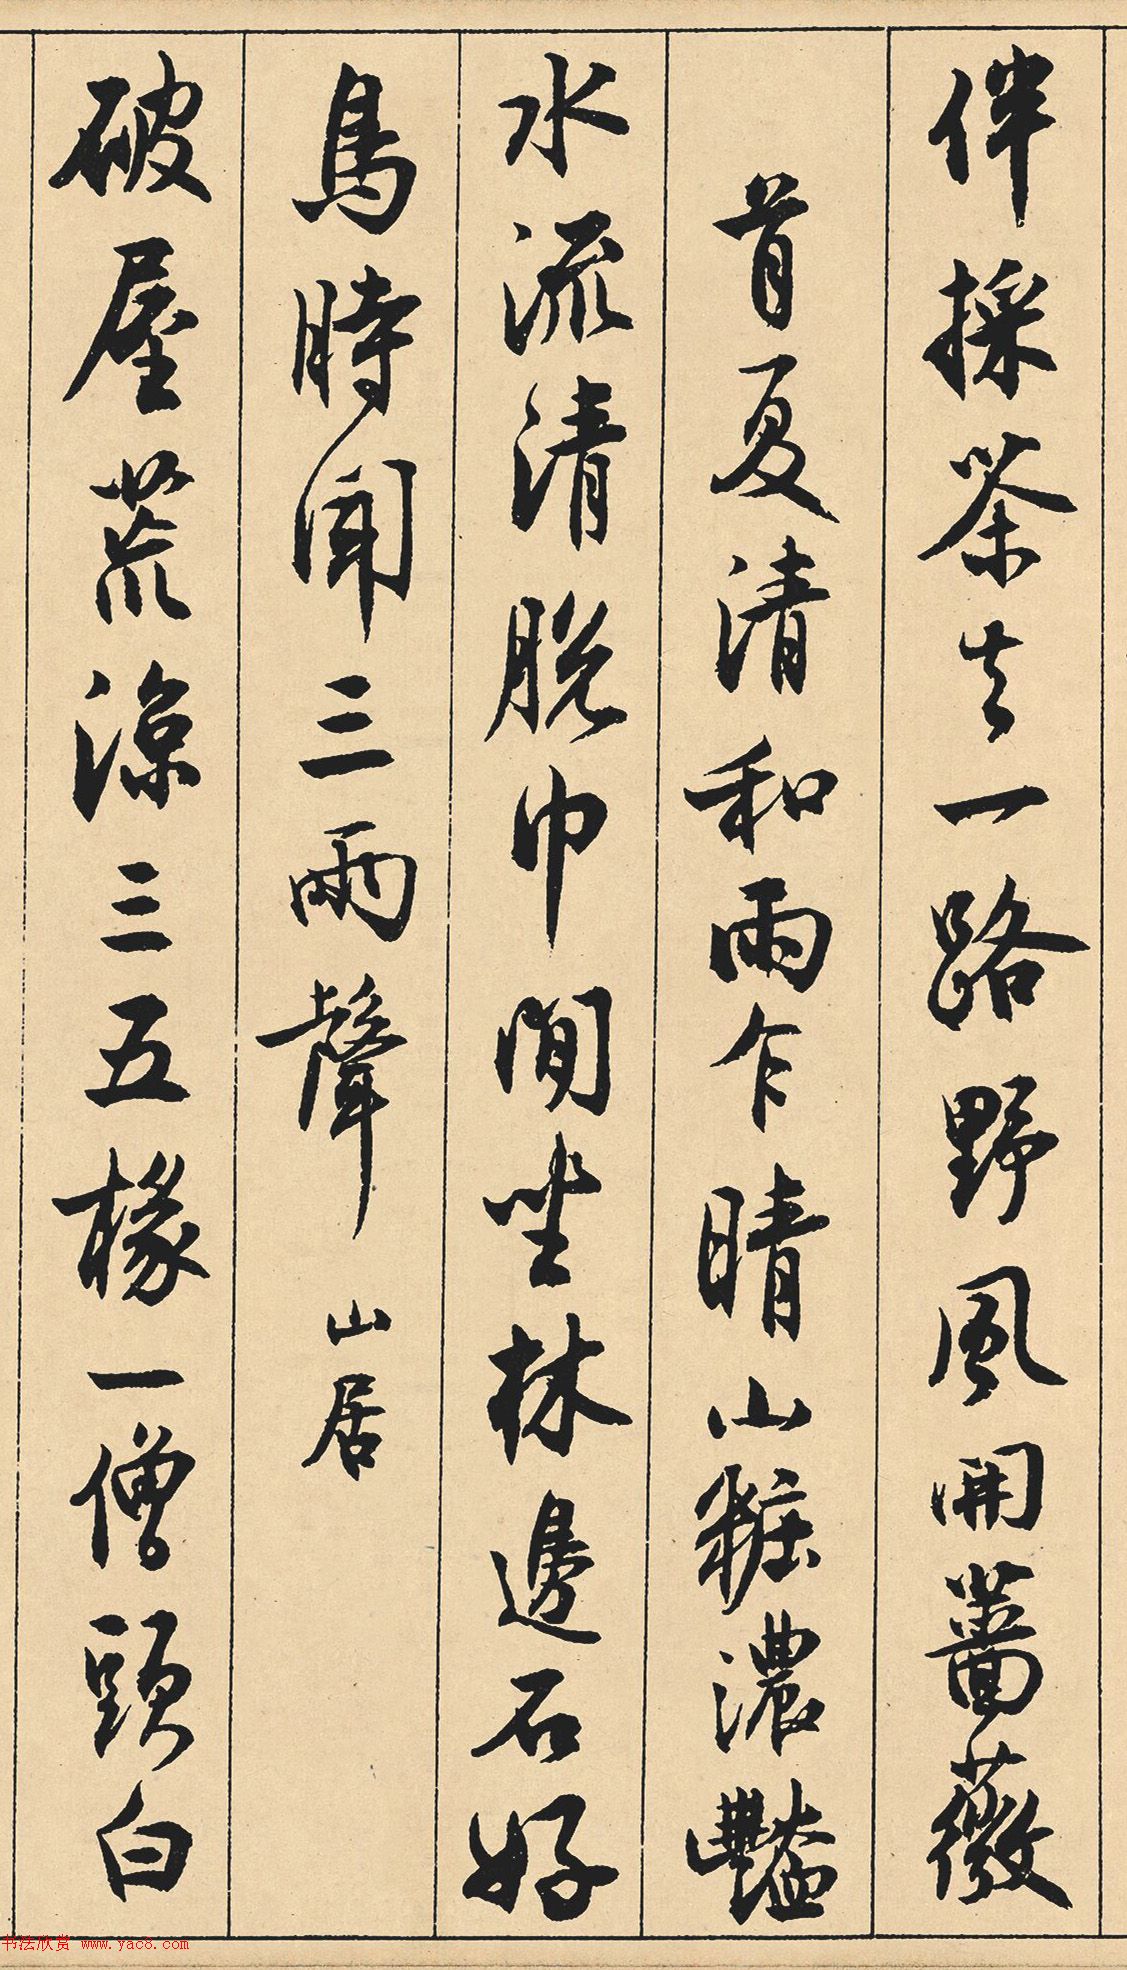 伴採茶去一路野風開薔薇
首夏清和雨乍晴山粧濃豔
水流清脫巾閒坐林邊石好
鳥時聞三兩聲 山居
破屋荒涼三五椽一僧頭白
书法欣赏 www.yac8.com